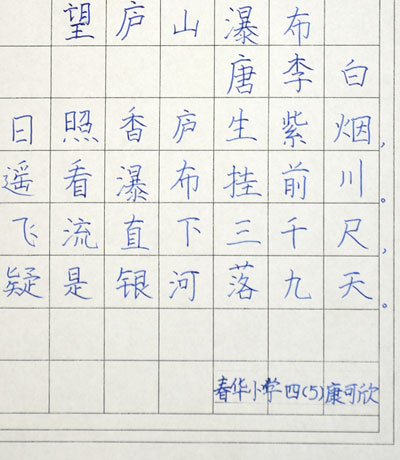 望庐山瀑布
唐 李白
日照香庐生紫烟,
遥看瀑布挂前川。
飞流直下三千尺,
疑是银河落九天。
春华小学四(5)康可欣